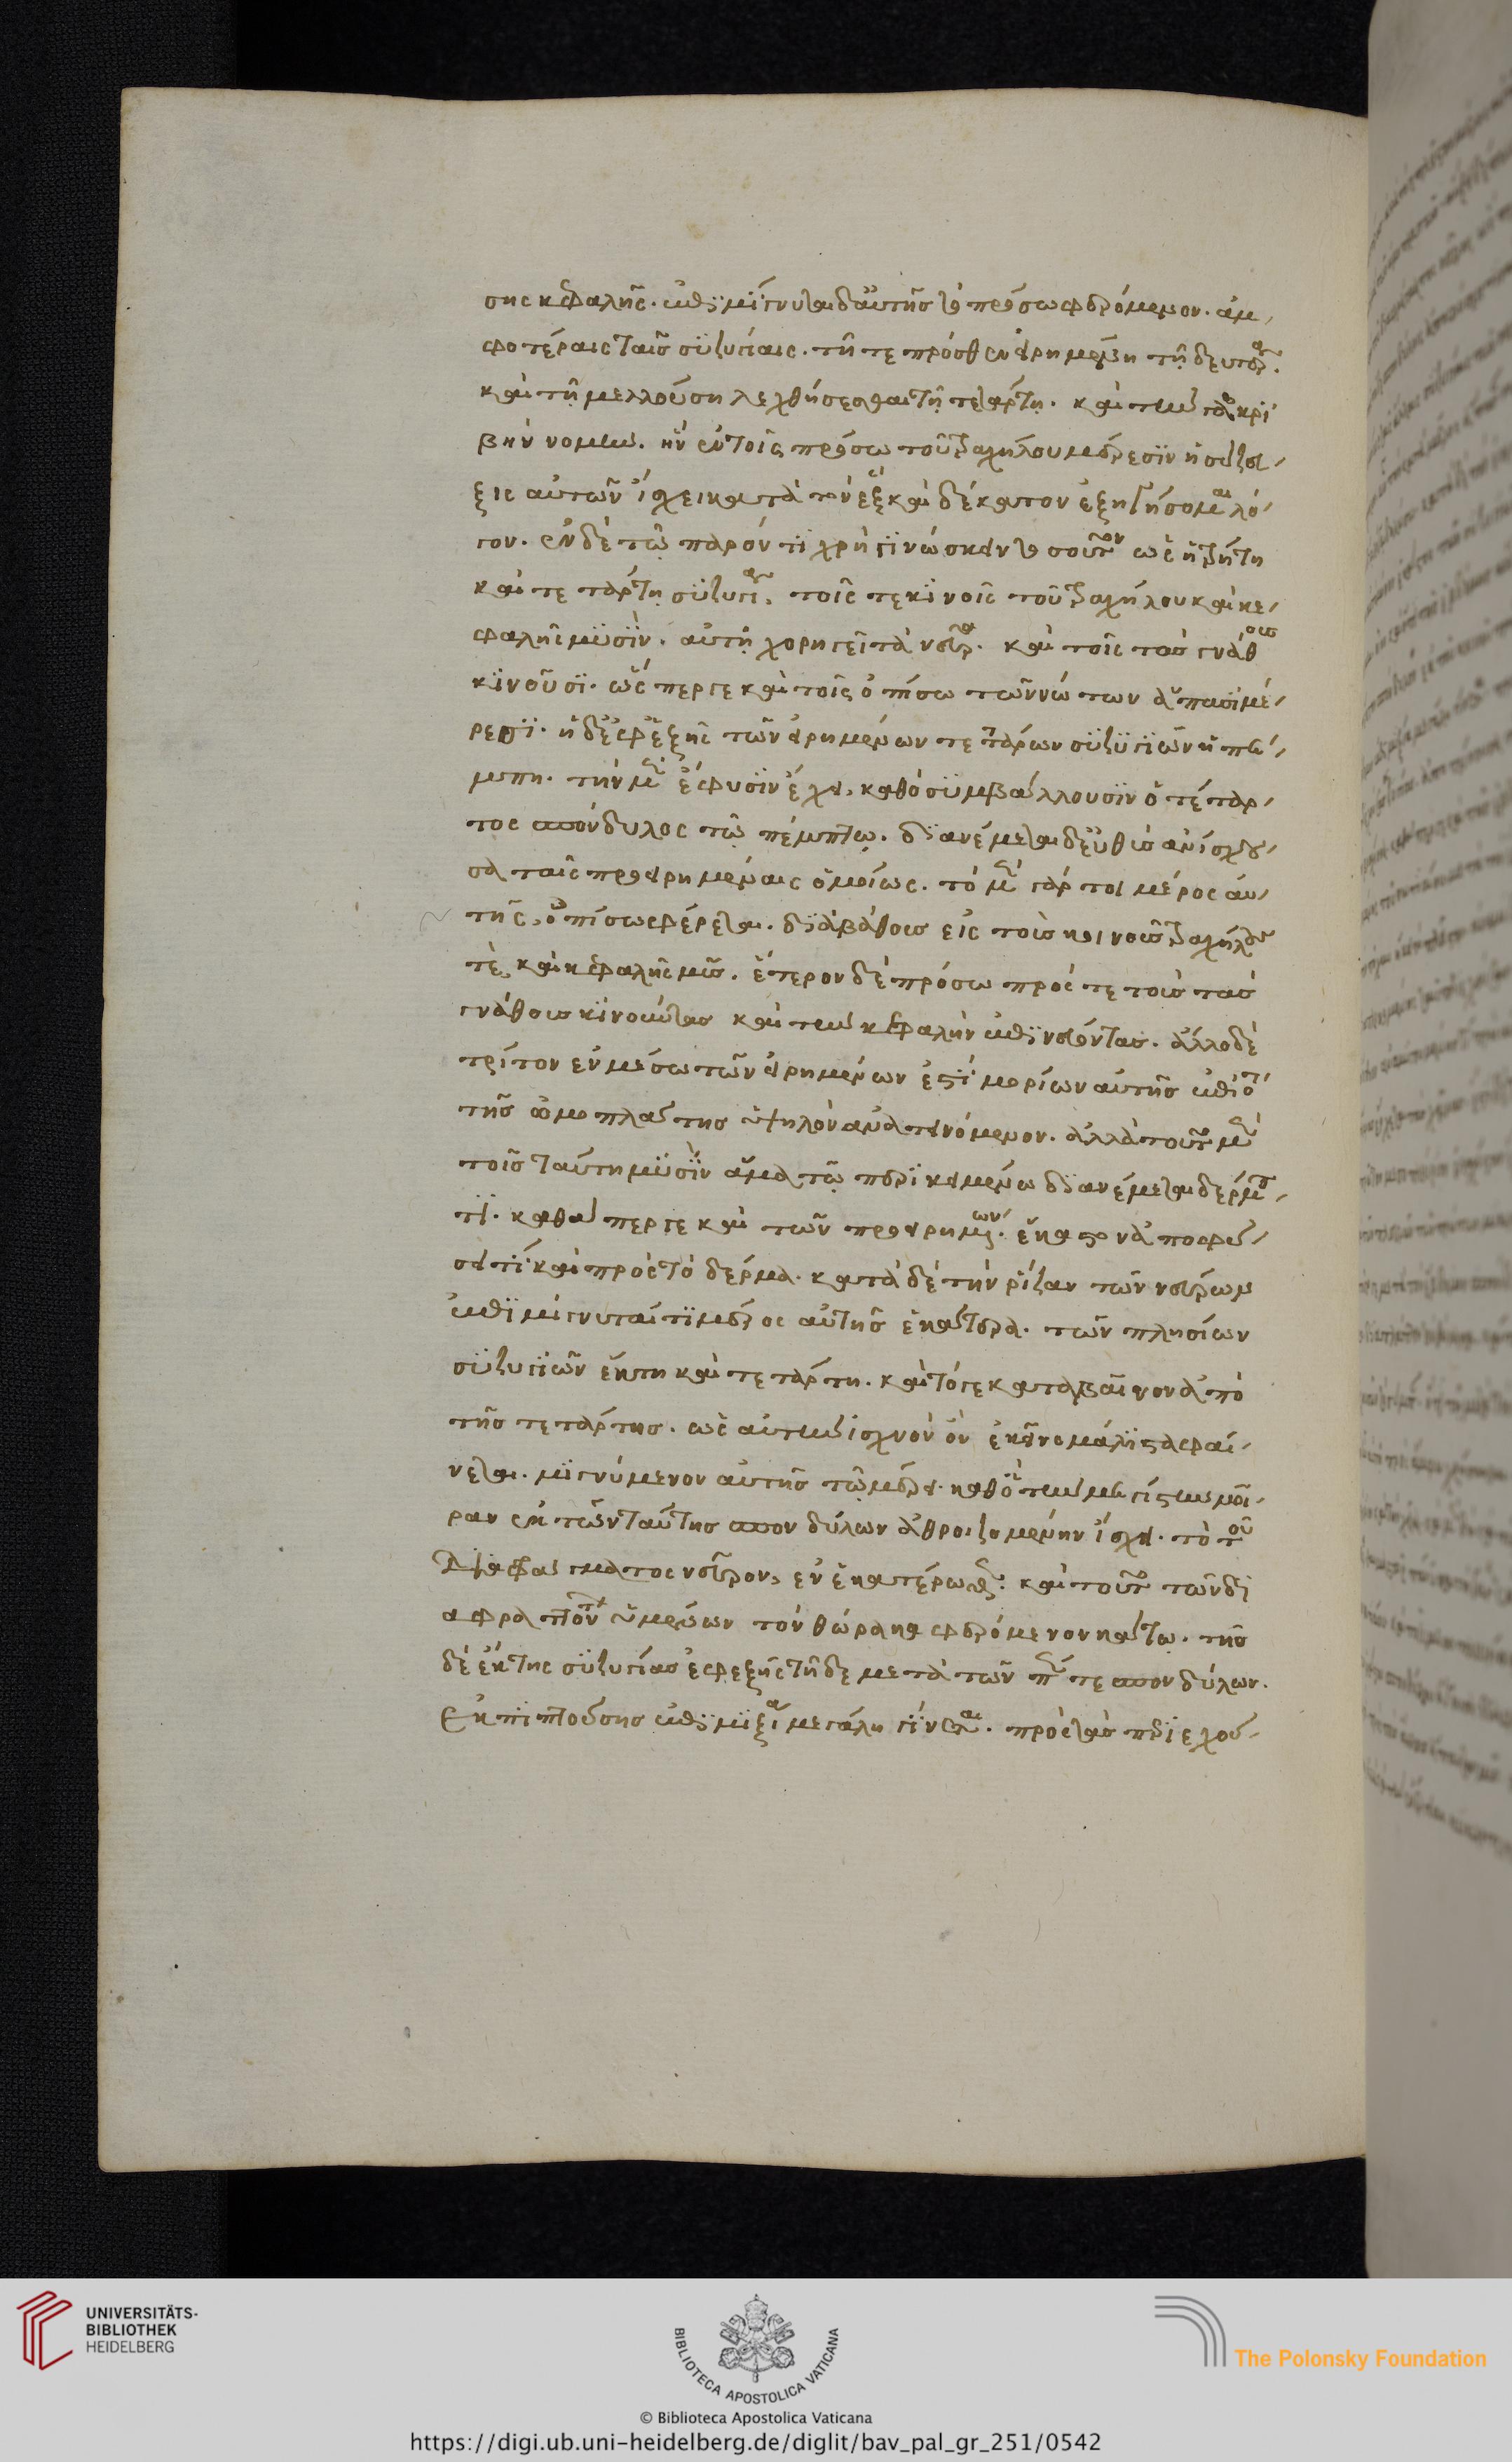 σης κεφαλῆς. ἐπιμίγνυται δ' αὐτῆς τὸ πρόσω φερόμενον. ἀμ
φοτέραις ταῖς συζυγίαις. τῇ τε πρόσθεν εἰρημένῃ τῇ δευτέρᾳ.
καὶ τῇ μελλούσῃ λεχθήσεσθαι τῇ τετάρτῃ. καὶ τὴν τἀκρι
βῆ νομὴν. ἣν ἐν τοῖς πρόσω τοῦ τραχήλου μέρεσιν ἡ σύζευ
ξις αὐτῶν ἴσχει κατὰ τὸν ἑξκαιδέκατον ἐξηγήσομαι λό
γον. ἐν δὲ τῷ παρόντι χρὴ γινώσκειν τοσοῦτον ὡς ἡ τρίτη
καὶ τετάρτη συζυγία. τοῖς τε κοινοῖς τοῦ τραχήλου καὶ κε
φαλῆς μυσὶν. αὐτῇ χορηγεῖ τὰ νεῦρα. καὶ τοῖς τὰς γνάθους
κινοῦσι. ὥς περ γε καὶ τοῖς ὀπίσω τῶν ὤτων ἅπασι μέ
ρεσι. ἡ δὲ ἐφεξῆς τῶν εἰρημένων τεττάρων συζυγιῶν ἡ πέ
μπτη. τὴν μὲν ἔκφυσιν ἔχει, καθὸ συμβάλλουσιν ὁ τέταρ
τος σπόνδυλος τῷ πέμπτῳ. διανέμεται δ' εὐθὺς ἀνίσχου
σα ταῖς προειρημέναις ὁμοίως. τὸ μὲν γάρ τοι μέρος αὐ
τῆς, ὀπίσω φέρεται. διὰ βάθους εἰς τοὺς κοινοὺς τραχήλου
τὲ, καὶ κεφαλῆς μῦς. ἕτερον δὲ πρόσω πρός τε τοὺς τὰς
γνάθους κινοῦντας καὶ τὴν κεφαλὴν ἐπινεύοντας. ἄλλο δὲ
τρίτον ἐν μέσω τῶν εἰρημένων ἐστὶ μορίων αὐτῆς ἐπὶ τὸ
τῆς ὠμοπλάτης ὑψηλὸν ἀνατεινόμενον. ἀλλὰ τοῦτο μὲν
τοῖς ταύτῃ μυσὶν ἅμα τῷ περικειμένω διανέμεται δέρμα
τι. καθάπερ γε καὶ τῶν προειρημένων. ἕκαστον ἀποφύ
σει τί καὶ πρὸς τὸ δέρμα. κατὰ δὲ τὴν ῥίζαν τῶν νεύρων
ἐπιμίγνυταί τι μέρος αὐτῆς ἑκατέρα. τῶν πλησίων
συζυγιῶν ἕκτη καὶ τετάρτη. καὶ τό γε καταβαῖνον ἀπὸ
τῆς τετάρτης. ὡς αὐτὴν ἰσχνὸν ὂν ἐκεῖνο μάλιστα φαί
νεται. μιγνύμενον αὐτῆς τῷ μέρει. καθὸ τὴν μεγίστην μοῖ
ραν ἐκ τῶν ταύτης σπονδύλων ἀθροιζομένην ἴσχει. τὸ τοῦ
διαφράγματος νεῦρον, ἐν ἑκατέρω μέρει. καὶ τοῦτο τῶν δι
αφραττόντων ὑμένων τὸν θώρακα φερόμενον κάτω. τῆς
δὲ ἕκτης συζυγίας ἐφεξῆς τῇδε μετὰ τῶν πέντε σπονδύλων.
ἐκπιπτούσης ἐπιμιξία μεγάλη γίνεται. πρὸς τὰς περιεχού
UNIVERSITÄTS-
BIBLIOTHEK
HEIDELBERG
BIBLIOTECA APOSTOLICA VATICANA
The Polonsky Foundation
© Biblioteca Apostolica Vaticana
https://digi.ub.uni-heidelberg.de/diglit/bav_pal_gr_251/0542